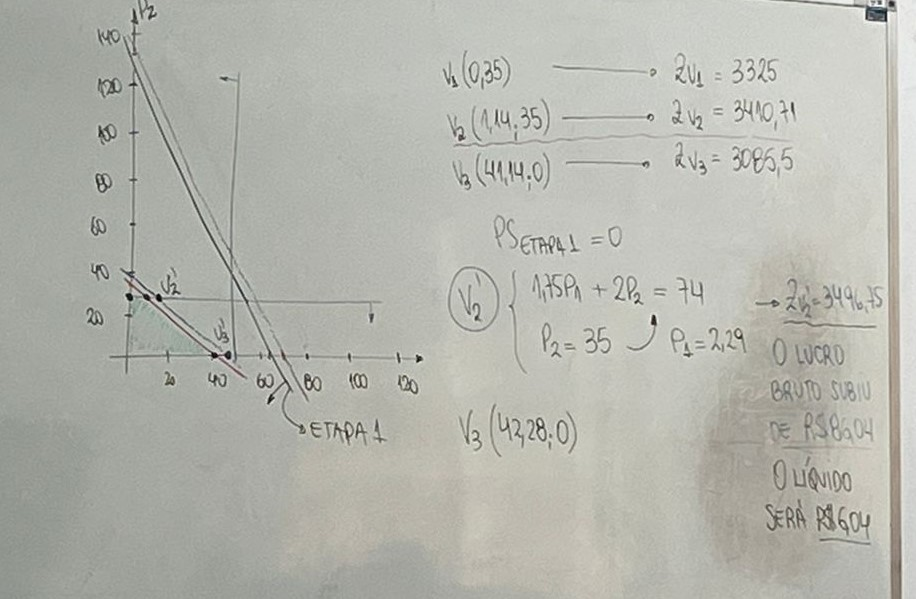 P₂
140
120
100
80
60
40
20
V₂'
V₃'
20 40 60 80 100 120
ETAPA 1
V₁(0,35) → ZV₁ = 3325
V₂(1,14;35) → ZV₂ = 3410,71
V₃(41,14;0) → ZV₃ = 3085,5
PS ETAPA 1 = 0
V₂' { 1,75P₁ + 2P₂ = 74
P₂ = 35 P₁ = 2,29
→ ZV₂' = 3496,75
V₃(42,28;0)
O LUCRO
BRUTO SUBIU
DE R$86,04
O LÍQUIDO
SERÁ R$6,04